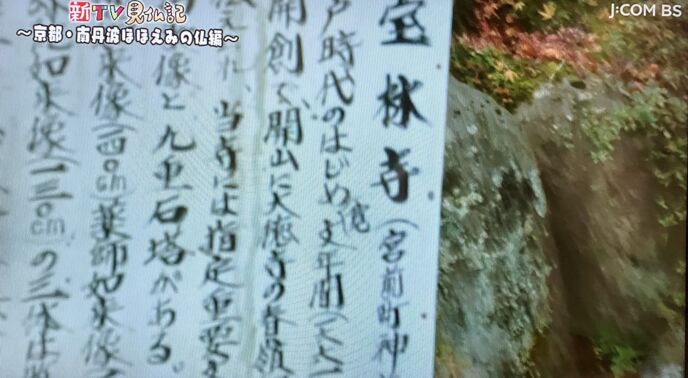 新TV見仏記
～京都・南丹波ほほえみの仏編～
J:COM BS
宝林寺（宮前町神
戸時代のはじめ寛文年間（六六一
開創で開山に大徳寺の春嶺
当寺には指定重要
像と九重石塔がある。
来像（一四〇cm）薬師如来像（
如来像（一三〇cm）の三体は